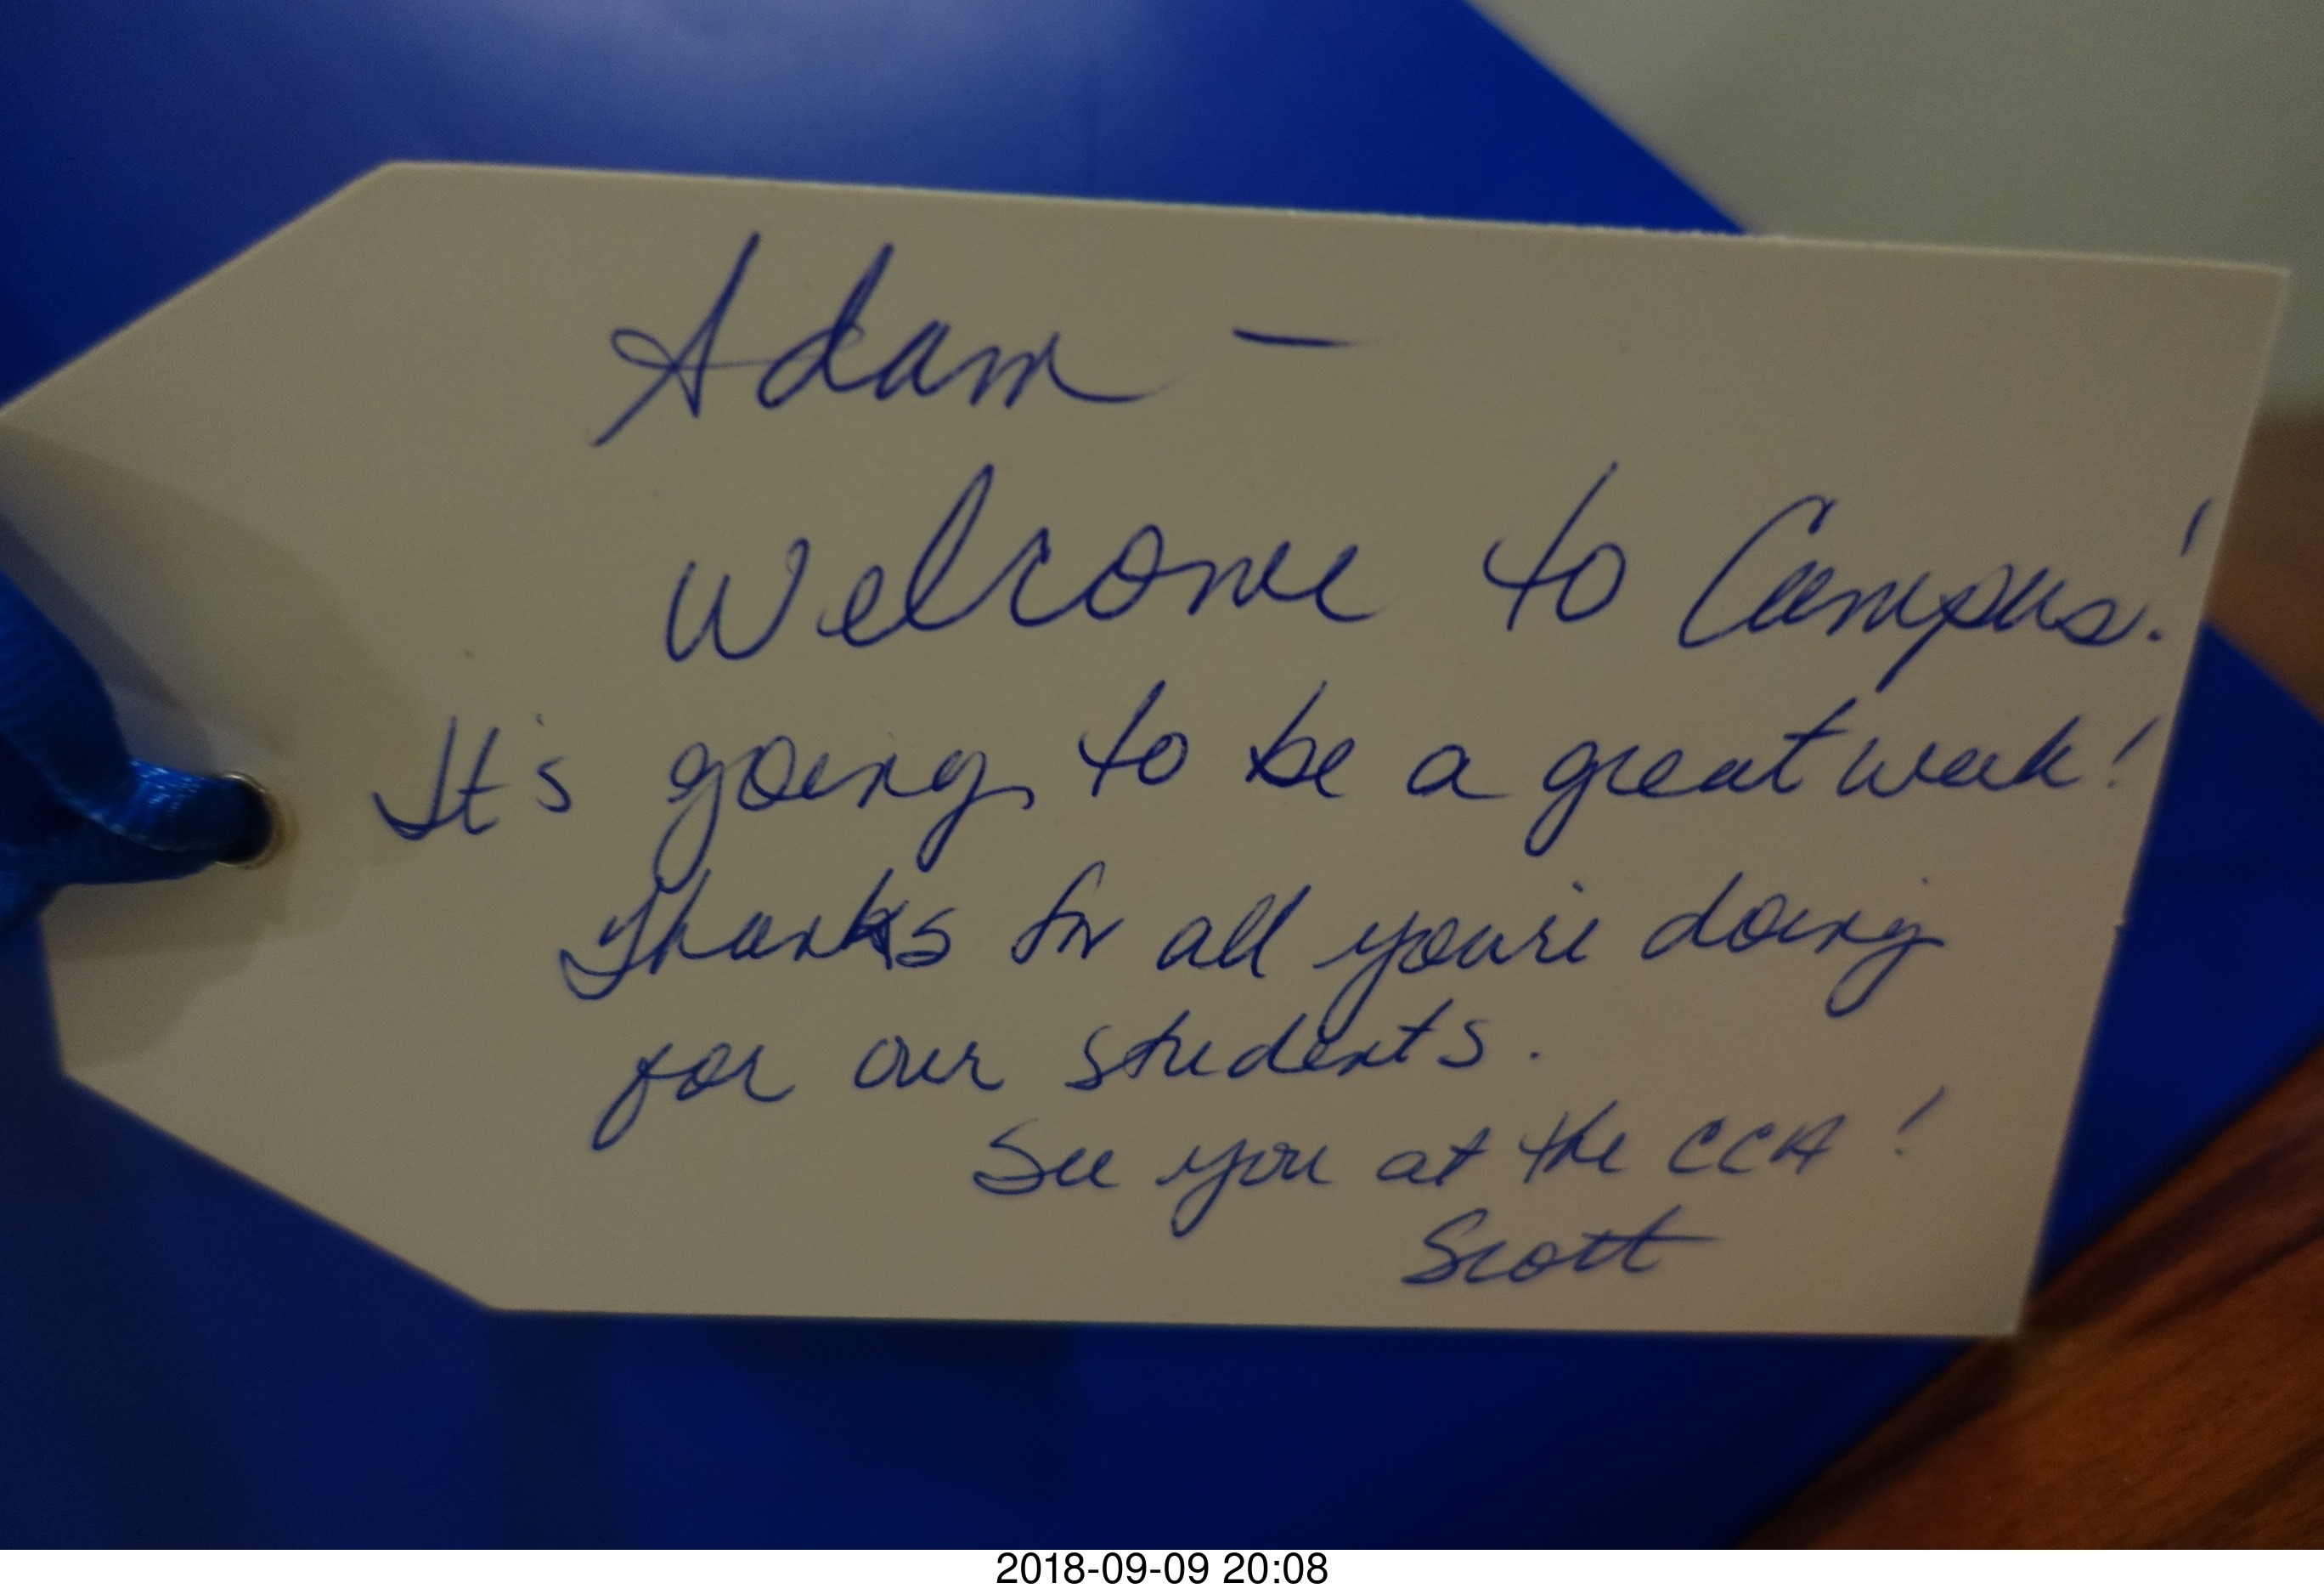 Adam —
Welcome to Campus!
It's going to be a great week!
Thanks for all you're doing
for our students.
See you at the CCA!
Scott
2018-09-09 20:08